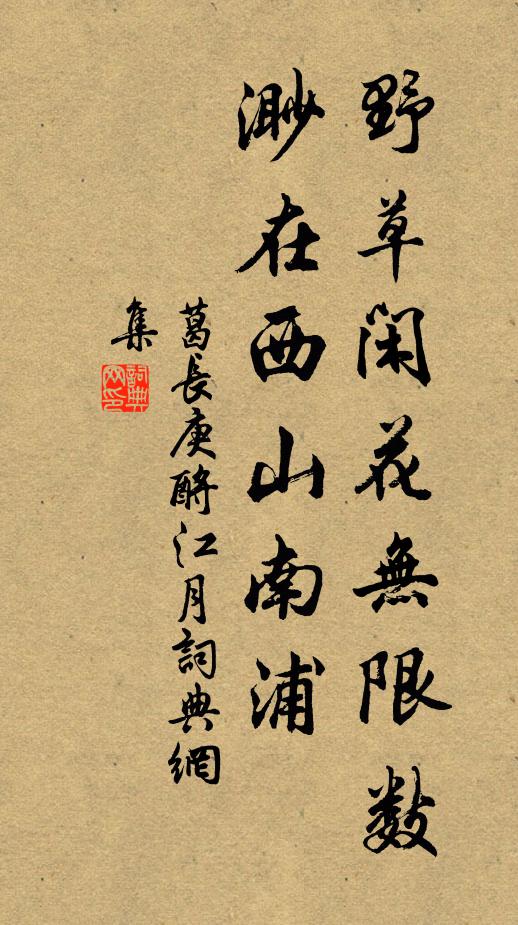 野草閑花無限數
渺在西山南浦
葛長庚酹江月詞典網
集
詞典
网印